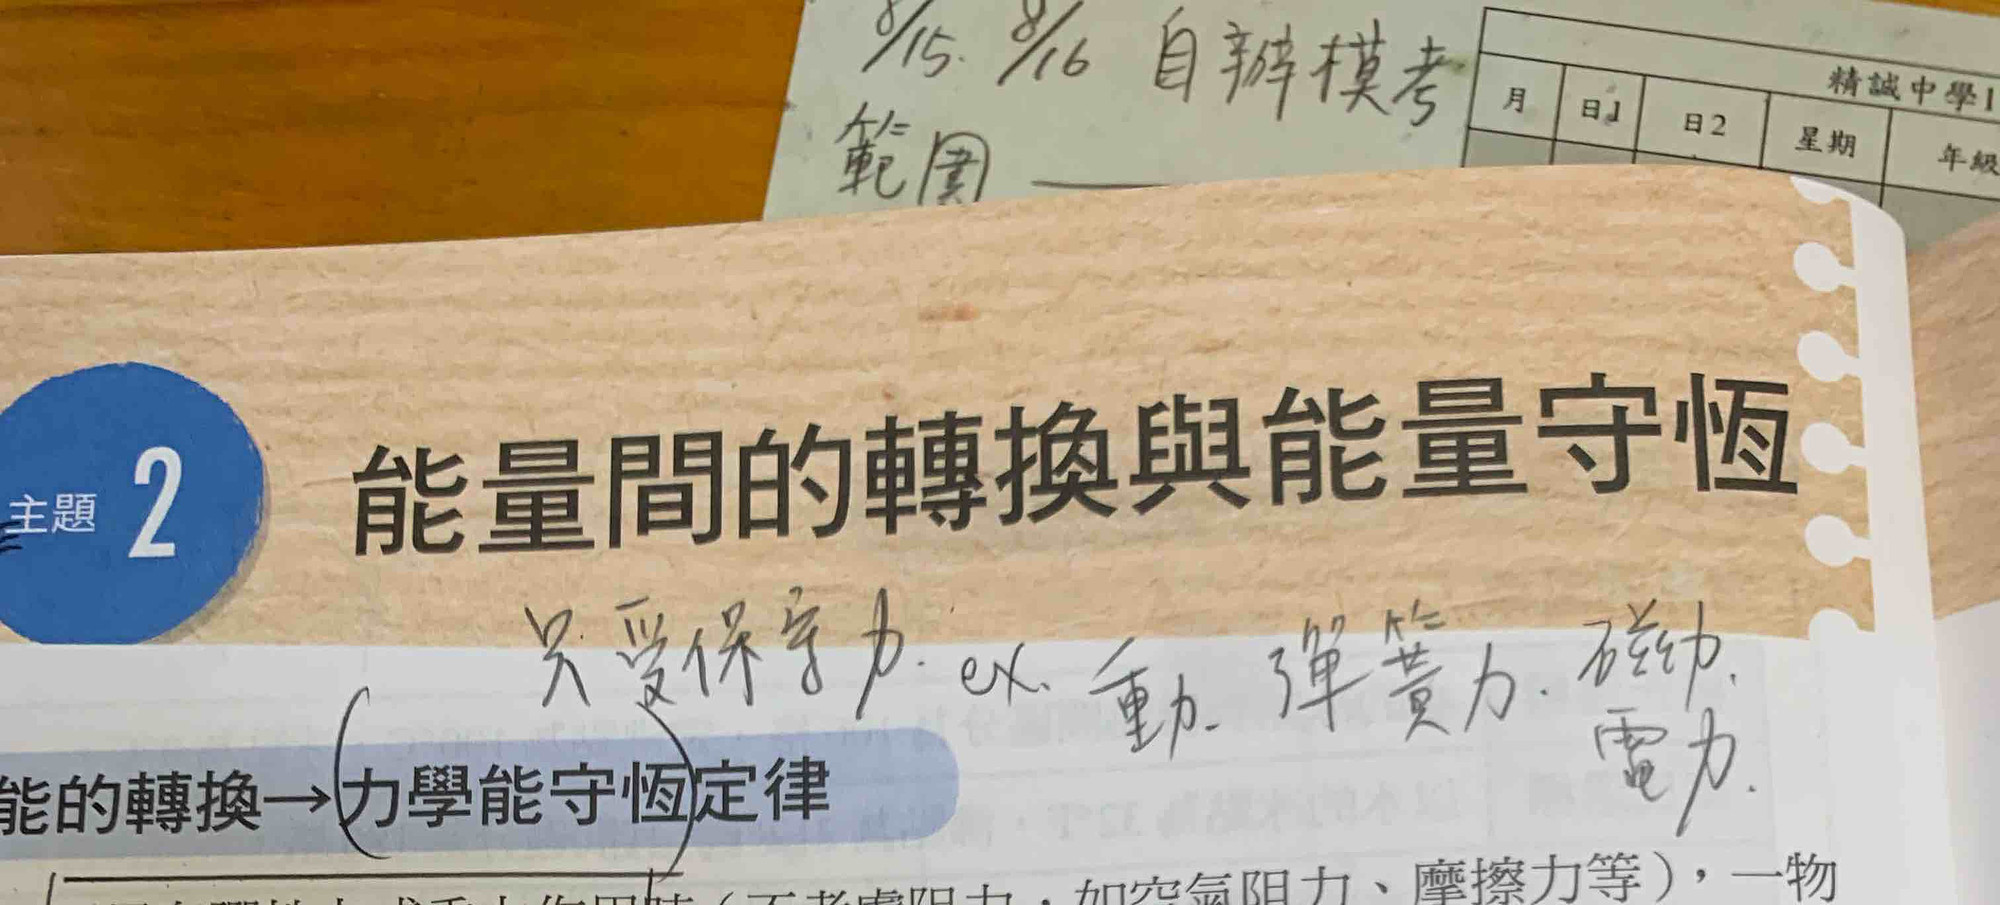 8/15. 8/16 自辦模考
範圍
精誠中學1
月 日1 日2 星期 年級
主題 2 能量間的轉換與能量守恆
只受保守力. ex. 重力. 彈簧力. 磁力.
電力.
能的轉換→(力學能守恆)定律
(不考慮阻力，如空氣阻力、摩擦力等)，一物